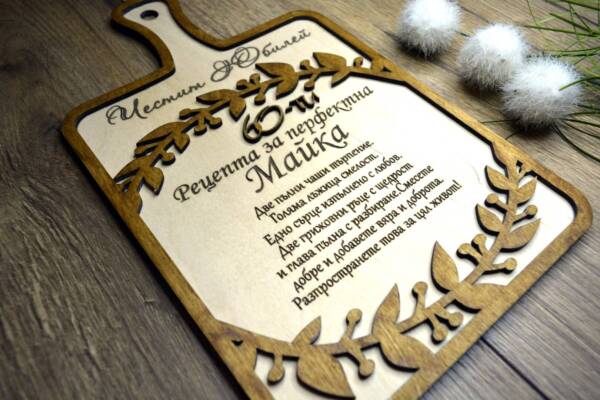 Честит Юбилей
60-ти
Рецепта за перфектна
Майка
Две пълни чаши търпение.
Голяма лъжица смелост.
Едно сърце изпълнено с любов.
Две грижовни ръце с щедрост
и глава пълна с разбиране.Смесете
добре и добавете вяра и доброта.
Разпространете това за цял живот!